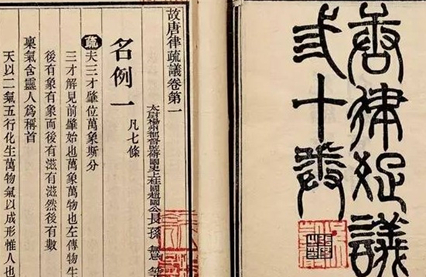 唐律疏議
弎十卷
故唐律疏議卷第一
太尉揚州都督監修國史上柱國趙國公長孫無
名例一 凡七條
疏 夫三才肇位萬象斯分
三才解見前肇始也萬象萬物也左傳物生
後有象有象而後有滋有滋然後有數
稟氣含靈人爲稱首
天以二氣五行化生萬物氣以成形惟人也